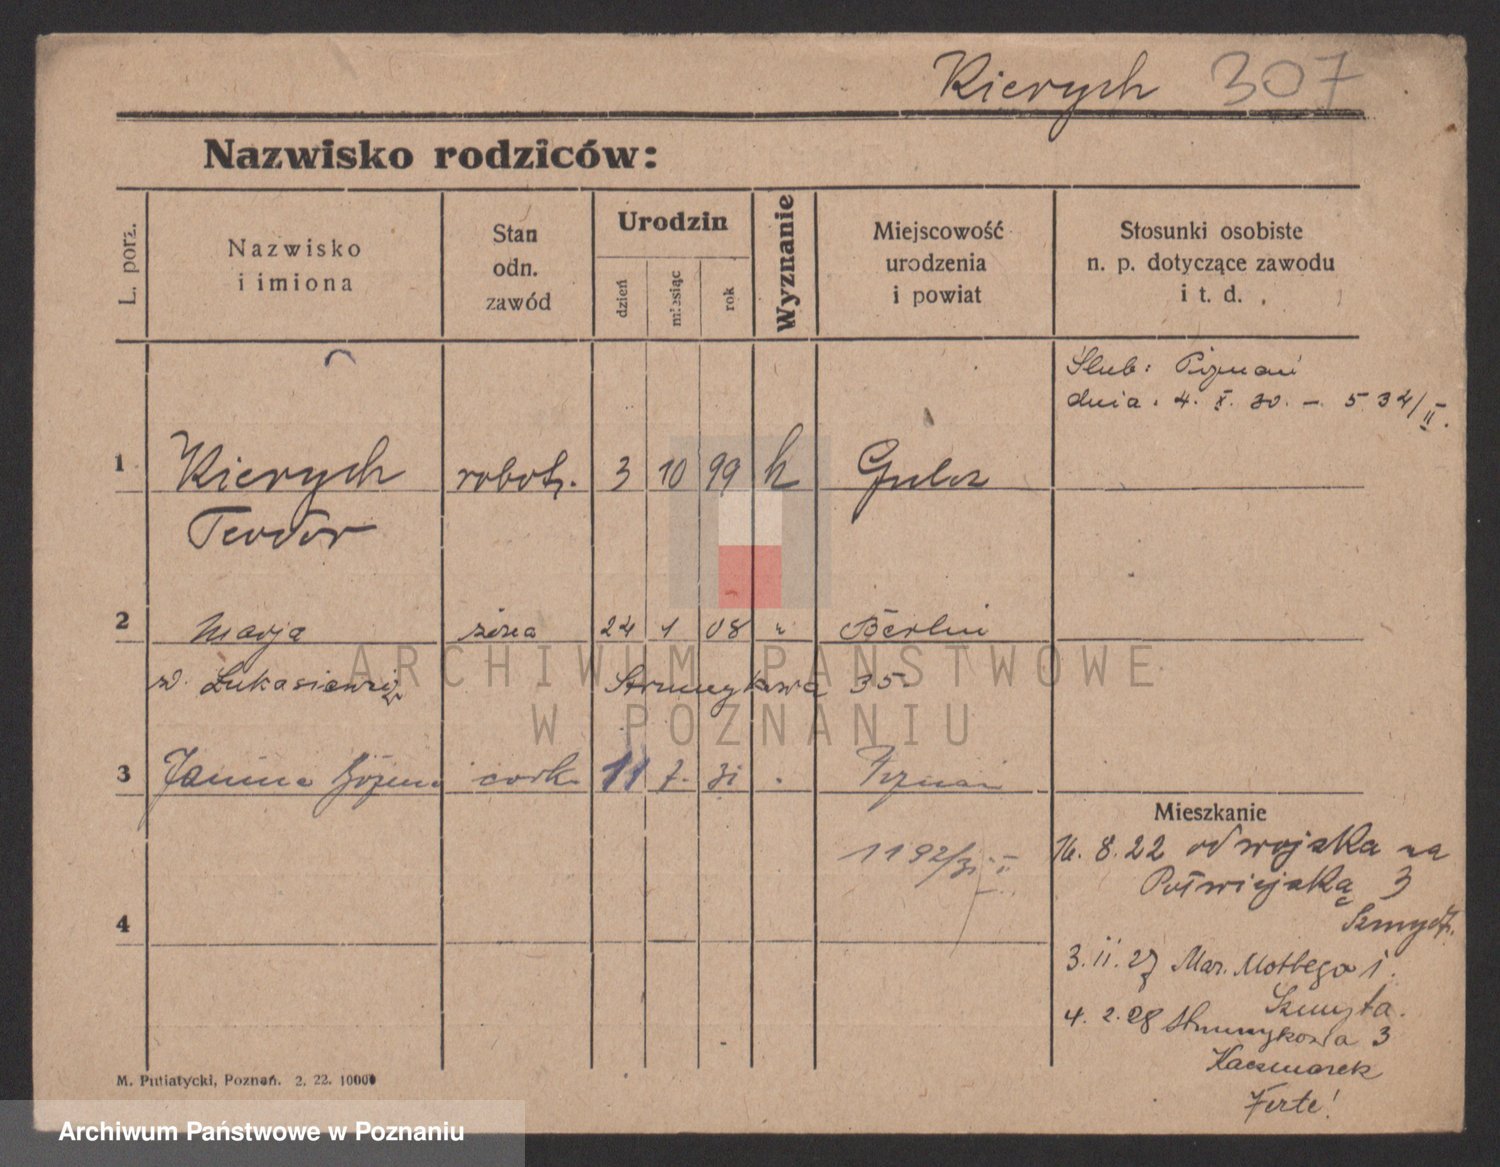 Kierych 307
Nazwisko rodziców:
L. porz.
Nazwisko
i imiona
Stan
odn.
zawód
Urodzin
dzień
miesiąc
rok
Wyznanie
Miejscowość
urodzenia
i powiat
Stosunki osobiste
n. p. dotyczące zawodu
i t. d.
Ślub: Poznań
dnia. 4. X. 30. – 534/II.
1 Kierych robotn. 3 10 99 k Gulcz
Teodor
2 Marja żona 24 1 08 " Berlin
z. Łukasiewicz Strumykowa 35
3 Janina Bożena córk. 11 7. 31 Poznań
1192/31. II
4
Mieszkanie
16. 8. 22 od wojska na
Półwiejską 3
Szmydt.
3. 11. 27 Mar. Mottego 1.
Szmyta.
4. 2. 28 Strumykowa 3
Kaczmarek
M. Putiatycki, Poznań. 2. 22. 10000
ARCHIWUM PAŃSTWOWE
W POZNANIU
Archiwum Państwowe w Poznaniu